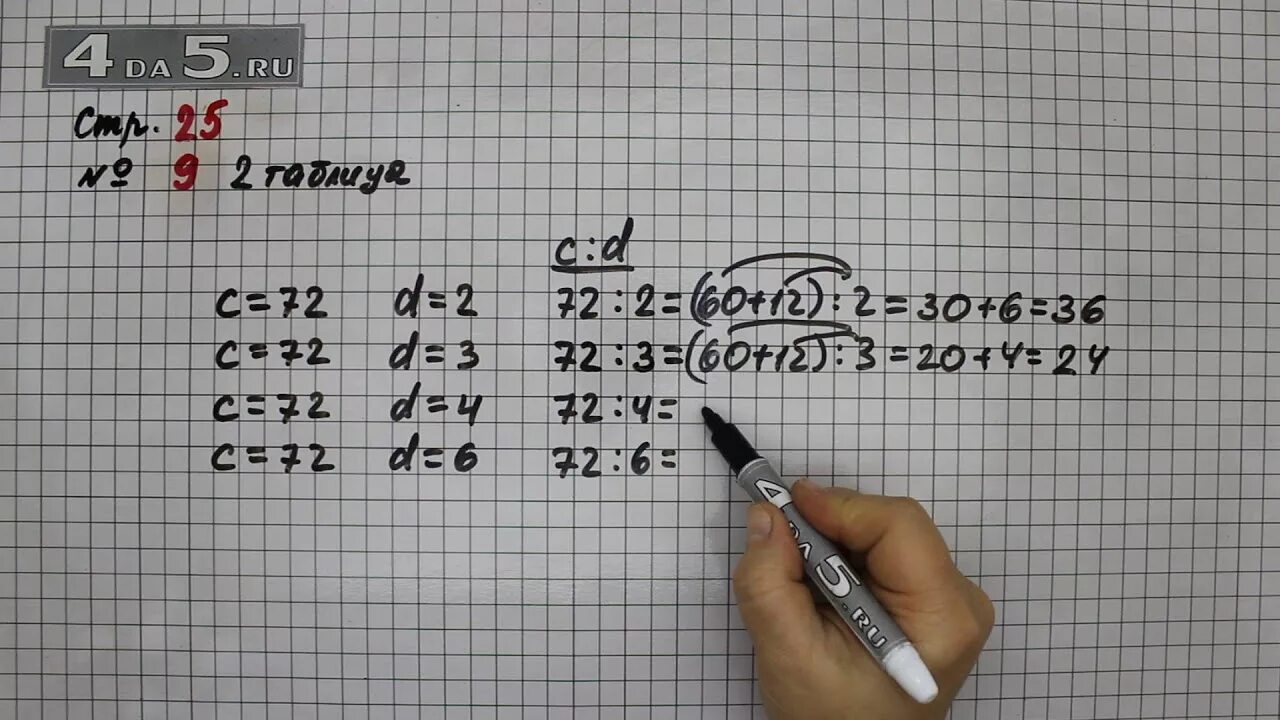 4 DA 5.RU
Стр. 25
№ 9 2 таблица
c:d
c=72 d=2 72:2=(60+12):2=30+6=36
c=72 d=3 72:3=(60+12):3=20+4=24
c=72 d=4 72:4=
c=72 d=6 72:6=
4 DA 5.RU